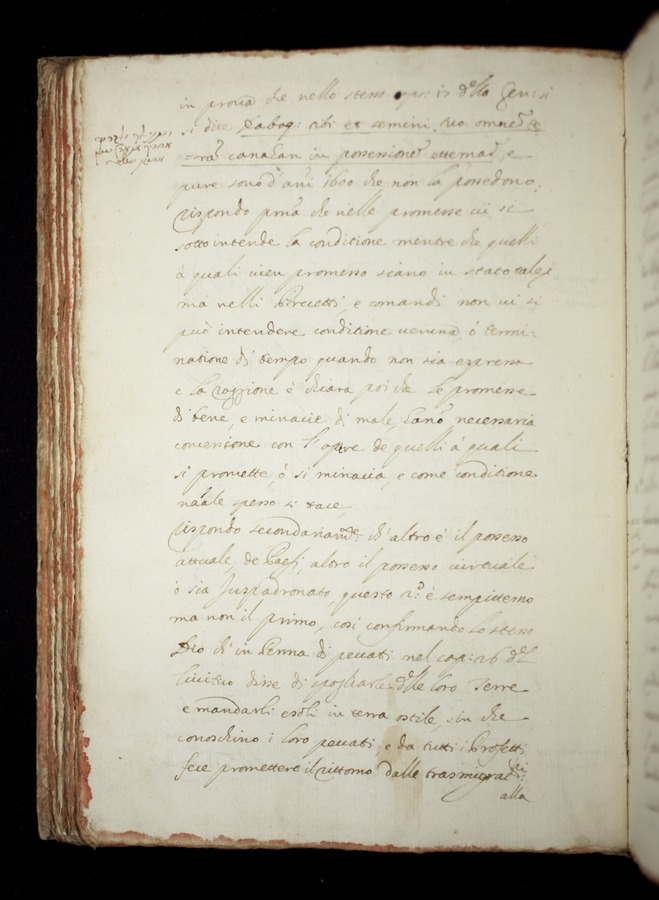 in proua che nello stesso cap: 17 della Gen: si
si dice Dabog: tibi et semini tuo omnem te
=rã canaãan in possessionẽ eternaẽ, e
pure sono d'ani 1600 che non la possedono;
Rispondo pma che nelle promesse ui si
sotto intende la conditione mentre che quelli
à quali uien promesso siano in stato tale,
ma nelli Precetti, e comandi non ui si
può intendere conditione ueruna, ò termi:
natione di tempo quando non sia espressa
e la raggione è chiara poi che le promesse
di bene, e minacie di male, hano necessaria
conuersione con l'opre de quelli à quali
si promette, ò si minacia, e come conditione
nãale spesso si tace,
Rispondo secondariamte: ch'altro è il possesso
attuale, de Paesi, altro il possesso uirtuale
ò sia Juspadronato, questo 2.o è sempitterno
ma non il primo, così confirmando lo stesso
Dio ch'in Penna di peccati nel cap: 26 del
Leuitico disse di spogliarle delle loro Terre
e mandarli esoli in terra ostile, sin che
conoschino i loro peccati, e da tutti i Profetti
fece promettere il ritorno dalle trasmigratni:
alla